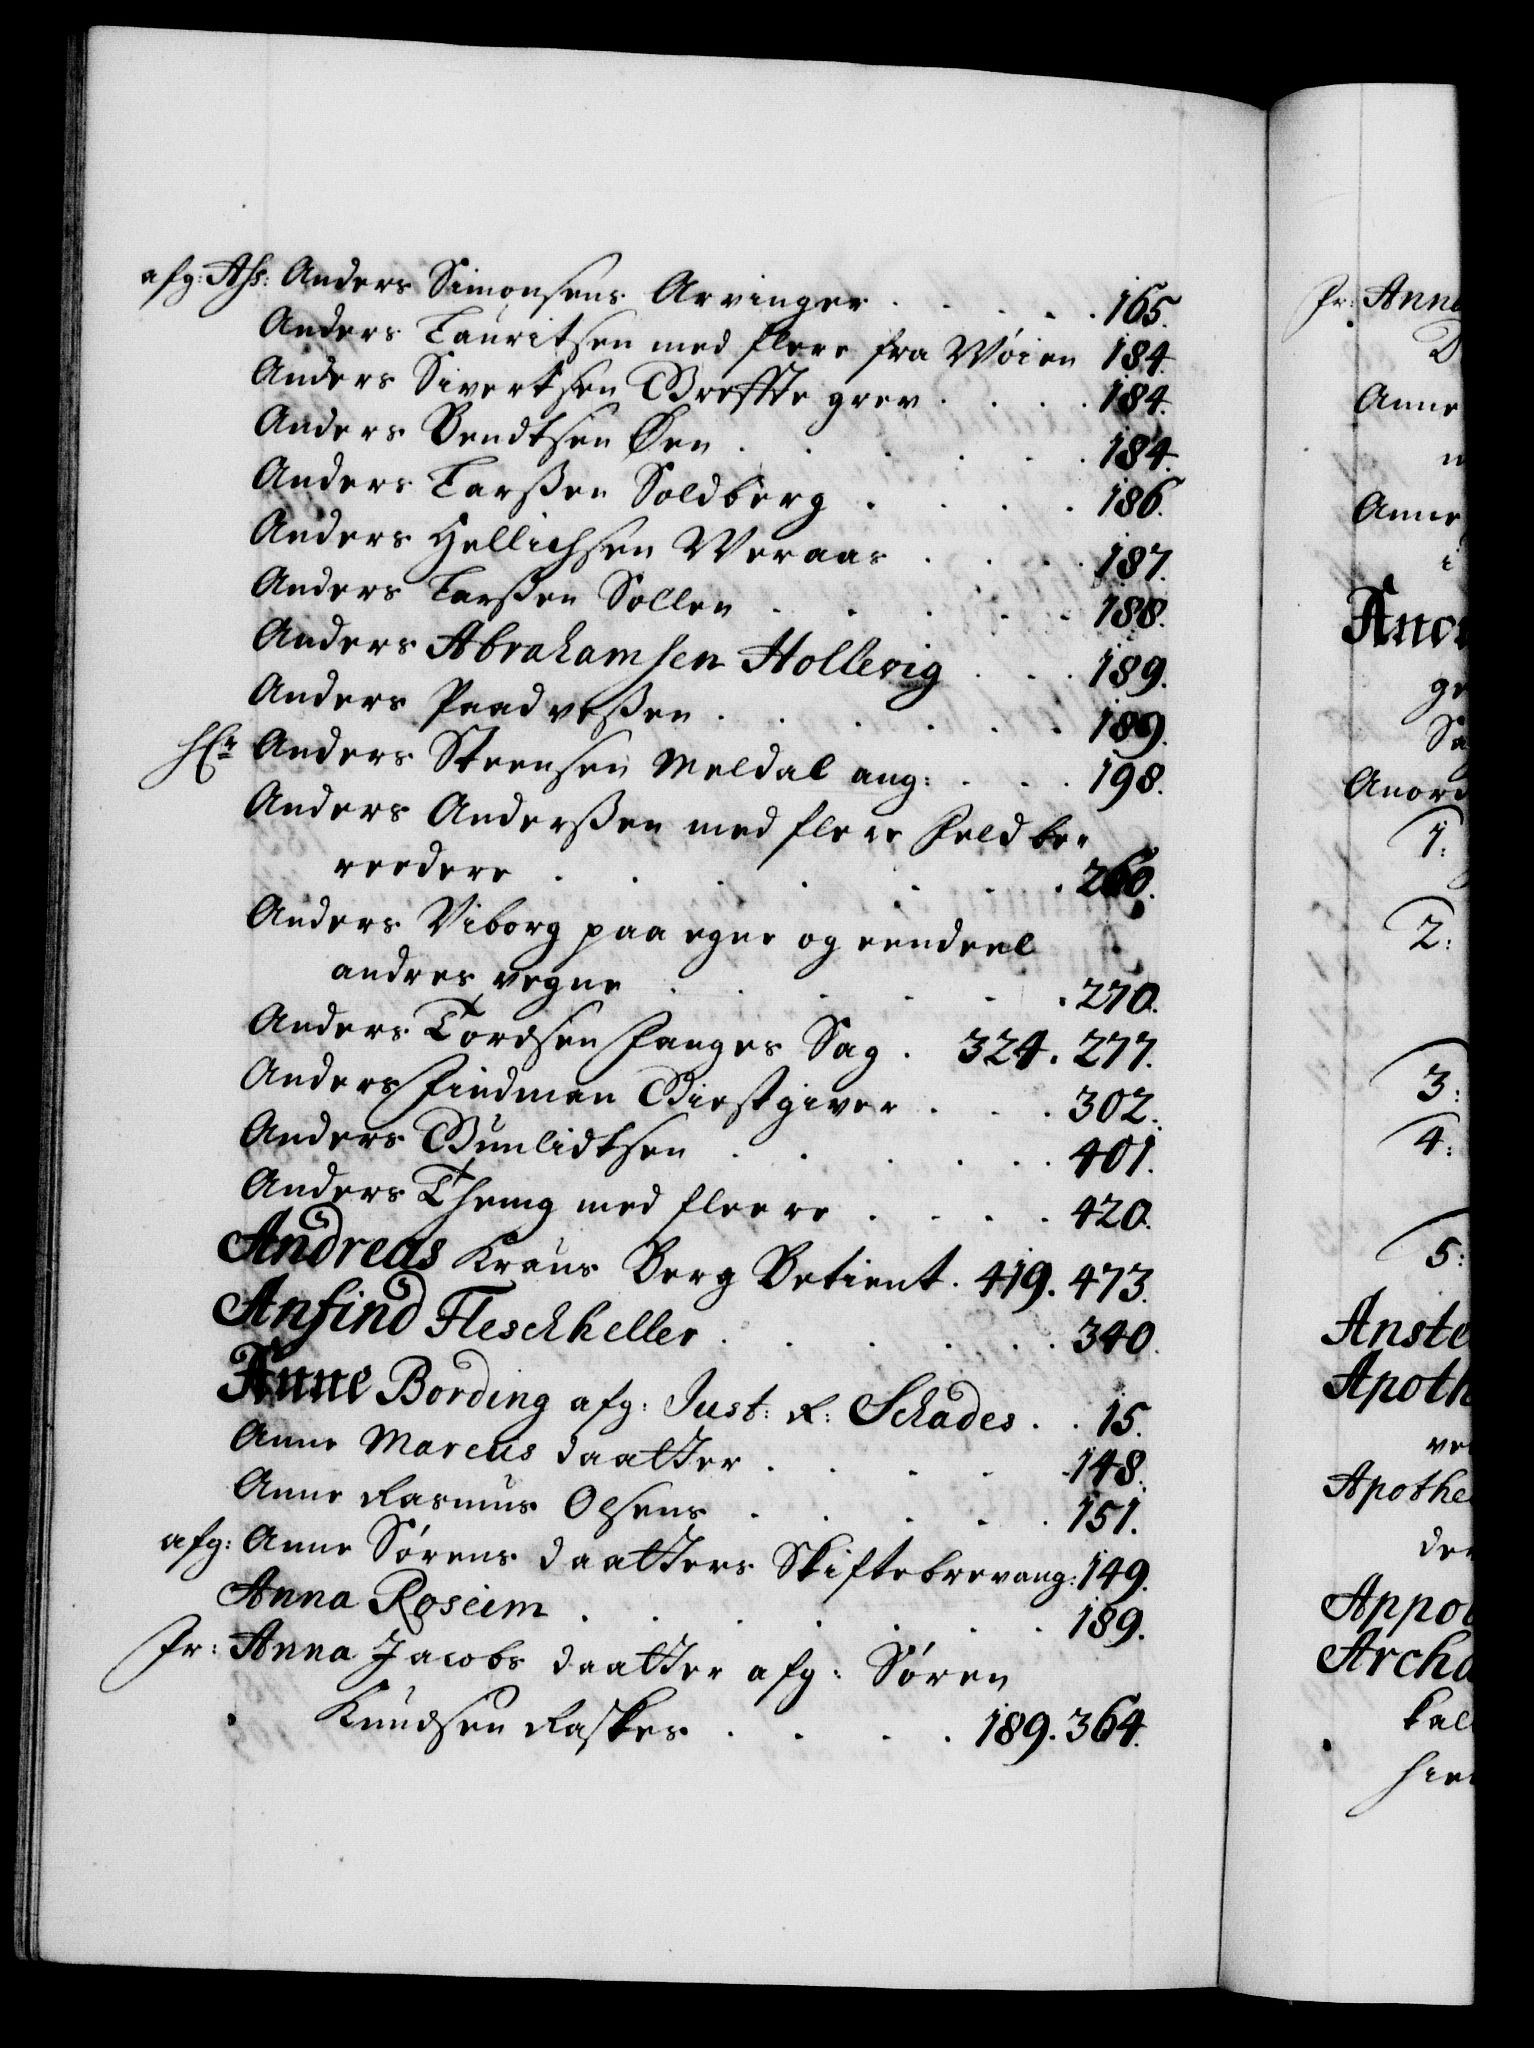 afg: Ass: Anders Simonsens Arvinger . . . . . 165.
Anders Lauritsen med flere fra Wöien 184.
Anders Sivertsen Greffte grev . . . . 184.
Anders Bendtsen Øen . . . . . . . 184.
Anders Larssen Soldberg . . . . 186.
Anders Hellichsen Weraas . . . . 187.
Anders Larssen Sollen . . . . . . 188.
Anders Abrahamsen Hollevig . . . 189.
Anders Paadvessen . . . . . . 189.
Hr Anders Steensen Meldal ang: . . . 198.
Anders Anderssen med flere Feldbe-
reedere . . . . . . . 260.
Anders Viborg paa egne og eendeel
andres vegne . . . . . . . 270.
Anders Tordsen Fanges Sag . 324. 277.
Anders Findman Giestgiver . . . 302.
Anders Gunlidtsen . . . . . . 401.
Anders Theng med fleere . . . . 420.
Andreas Kraus Berg Betient . 419. 473.
Anfind Fleschheller . . . . . . 340.
Anne Bording afg: Just: R: Schades . . 15.
Anne Marcus daatter . . . . . 148.
Anne Rasmus Olsens . . . . . 151.
afg: Anne Sörens daatters Skiftebrev ang: 149.
Anna Roseim . . . . . . 189.
Jr: Anna Jacobs daatter afg: Sören
Knudsen Raskes . . . . 189. 364.
Jr: Anna
Anne
Anne
i
ge
Anord
1:
2:
3:
4:
5:
Anste
Apoth
ve
Apothe
der
Appot
Archa
kal
hie